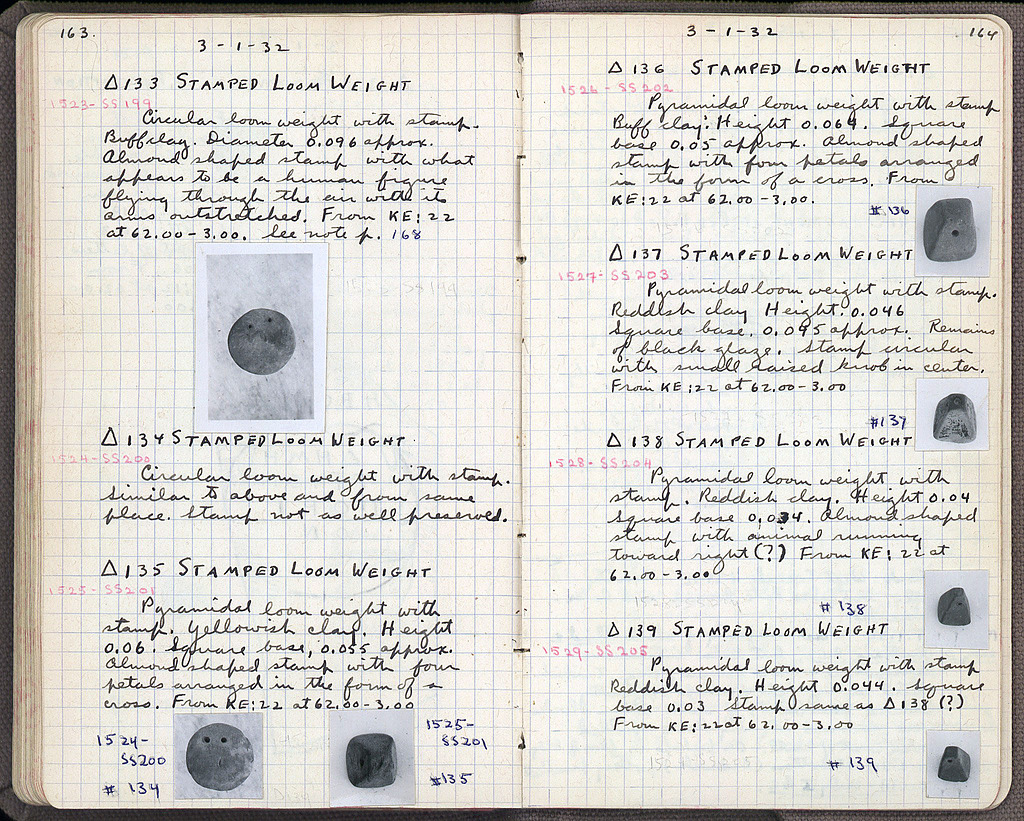 163.
3-1-32
Δ133 STAMPED LOOM WEIGHT
1523-SS199
Circular loom weight with stamp.
Buff clay. Diameter 0.096 approx.
Almond shaped stamp with what
appears to be a human figure
flying through the air with its
arms outstretched. From KE:22
at 62.00-3.00. See note p. 168
Δ134 STAMPED LOOM WEIGHT
1524-SS200
Circular loom weight with stamp.
Similar to above and from same
place. Stamp not as well preserved.
Δ135 STAMPED LOOM WEIGHT
1525-SS201
Pyramidal loom weight with
stamp. Yellowish clay. Height
0.06. Square base, 0.055 approx.
Almond shaped stamp with four
petals arranged in the form of a
cross. From KE:22 at 62.00-3.00
1524-
SS200
# 134
1525-
SS201
#135
3-1-32
164
Δ136 STAMPED LOOM WEIGHT
1526-SS202
Pyramidal loom weight with stamp
Buff clay. Height 0.064. Square
base 0.05 approx. Almond shaped
stamp with four petals arranged
in the form of a cross. From
KE:22 at 62.00-3.00.
#136
Δ137 STAMPED LOOM WEIGHT
1527-SS203
Pyramidal loom weight with stamp.
Reddish clay Height. 0.046
Square base. 0.045 approx. Remains
of black glaze. Stamp circular
with small raised knob in center.
From KE:22 at 62.00-3.00
#137
Δ138 STAMPED LOOM WEIGHT
1528-SS204
Pyramidal loom weight with
stamp. Reddish clay. Height 0.04
Square base 0.034. Almond shaped
stamp with animal running
toward right (?) From KE:22 at
62.00-3.00
# 138
Δ139 STAMPED LOOM WEIGHT
1529-SS205
Pyramidal loom weight with stamp
Reddish clay. Height 0.044. Square
base 0.03 Stamp same as Δ138 (?)
From KE:22 at 62.00-3.00
# 139